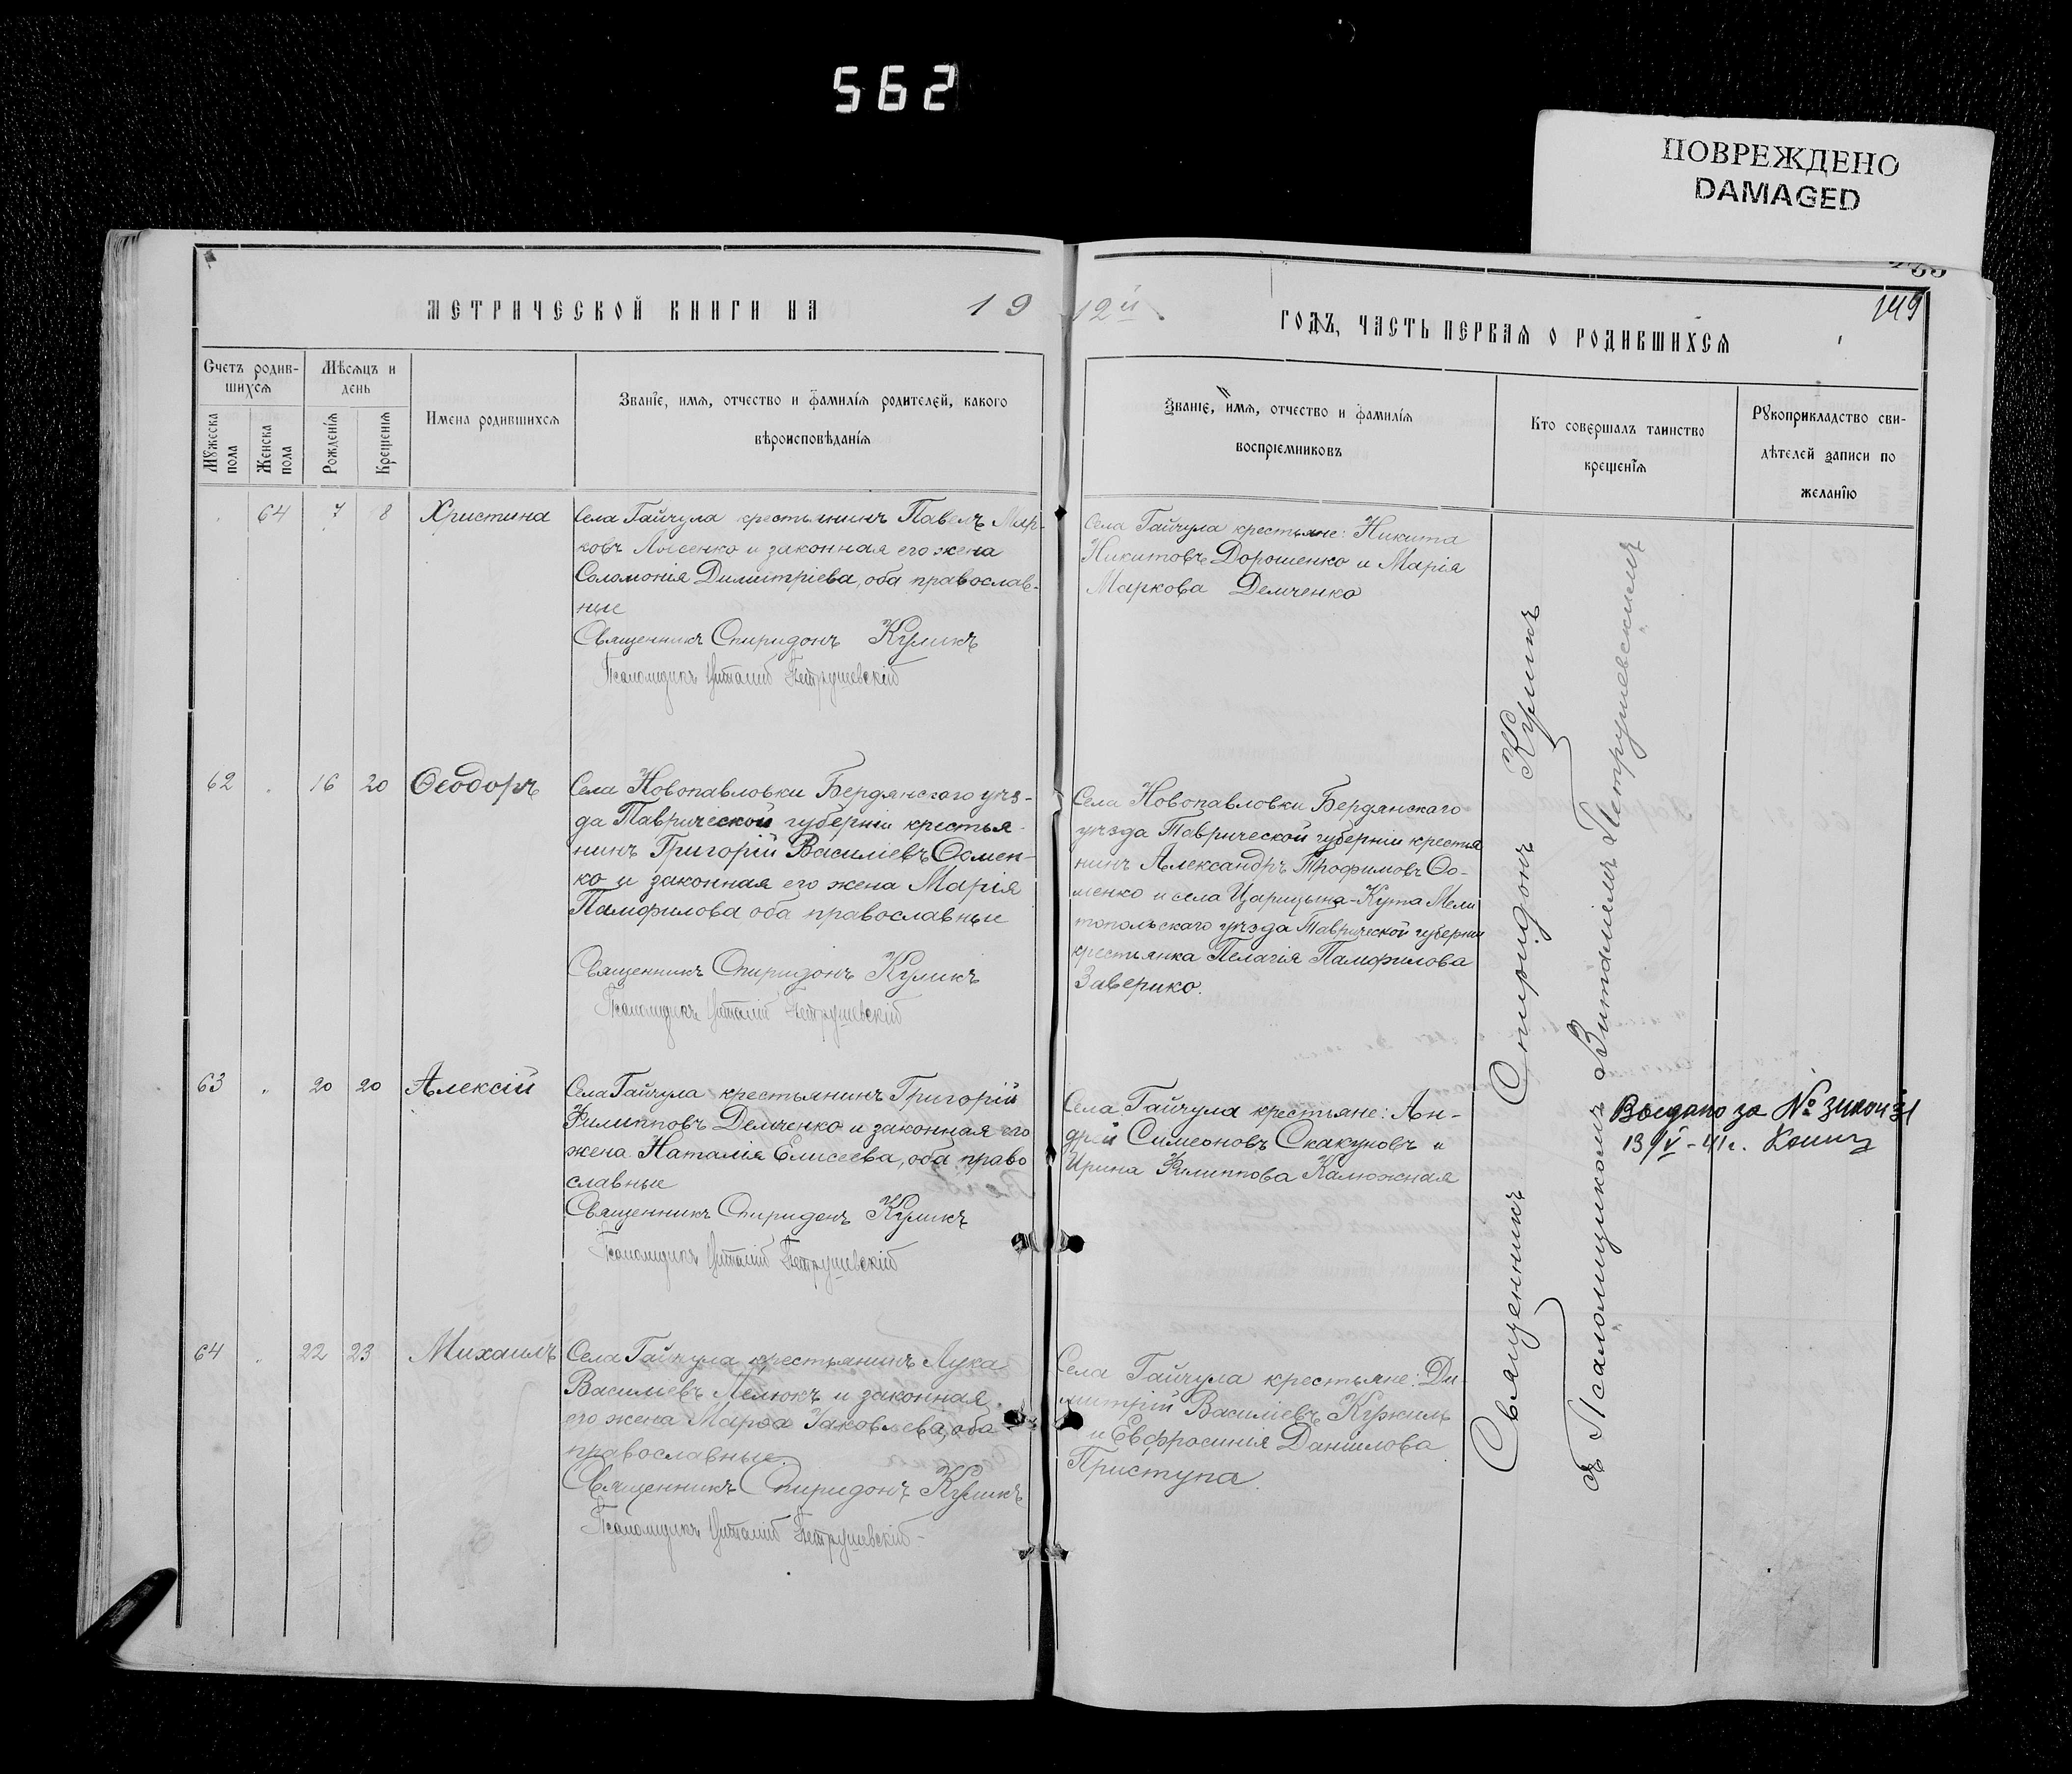 562
ПОВРЕЖДЕНО
DAMAGED
МЕТРИЧЕСКОЙ КНИГИ НА 19
12й ГОДЪ, ЧАСТЬ ПЕРВАЯ О РОДИВШИХСЯ
149
Счетъ родив-
шихся
Мѣсяцъ и
день
Мужеска
пола
Женска
пола
Рожденія
Крещенія
Имена родившихся
Званіе, имя, отчество и фамилія родителей, какого
вѣроисповѣданія
Званіе, имя, отчество и фамилія
воспріемниковъ
Кто совершалъ таинство
крещенія
Рукоприкладство сви-
дѣтелей записи по
желанію
64 7 8 Христина
Села Гайчула крестьянинъ Павелъ Мар-
ковъ Лысенко и законная его жена
Соломонія Димитріева, оба православ-
ные
Священникъ Спиридонъ Куликъ
Псаломщикъ Виталій Петрушевскій
Села Гайчула крестьяне: Никита
Никитовъ Дорошенко и Марія
Маркова Демченко
62 16 20 Ѳеодоръ
Села Новопавловки Бердянскаго уѣз-
да Таврической губерніи крестья-
нинъ Григорій Василіевъ Ѳомен-
ко и законная его жена Марія
Памфилова оба православные
Священникъ Спиридонъ Куликъ
Псаломщикъ Виталій Петрушевскій
Села Новопавловки Бердянскаго
уѣзда Таврической губерніи крестья
нинъ Александръ Трофимовъ Ѳо-
менко и села Царицына-Кута Мели
топольскаго уѣзда Таврической губерніи
крестьянка Пелагія Памфилова
Заверико.
63 20 20 Алексій
Села Гайчула крестьянинъ Григорій
Филипповъ Демченко и законная его
жена Наталія Елисеева, оба право
славные
Священникъ Спиридонъ Куликъ
Псаломщикъ Виталій Петрушевскій
Села Гайчула крестьяне: Ан-
дрей Симеоновъ Скакуновъ и
Ирина Филиппова Калюжная
Выдано за №
13/V-41г.
64 22 23 Михаилъ
Села Гайчула крестьянинъ Лука
Василіевъ Лелюкъ и законная
его жена Марѳа Іаковлева, оба
православные.
Священникъ Спиридонъ Куликъ
Псаломщикъ Виталій Петрушевскій
Села Гайчула крестьяне: Ди-
митрій Василіевъ Кужиль
и Евфросинія Даніилова
Приступа.
Священникъ Спиридонъ Куликъ
съ Псаломщикомъ Виталіемъ Петрушевскимъ